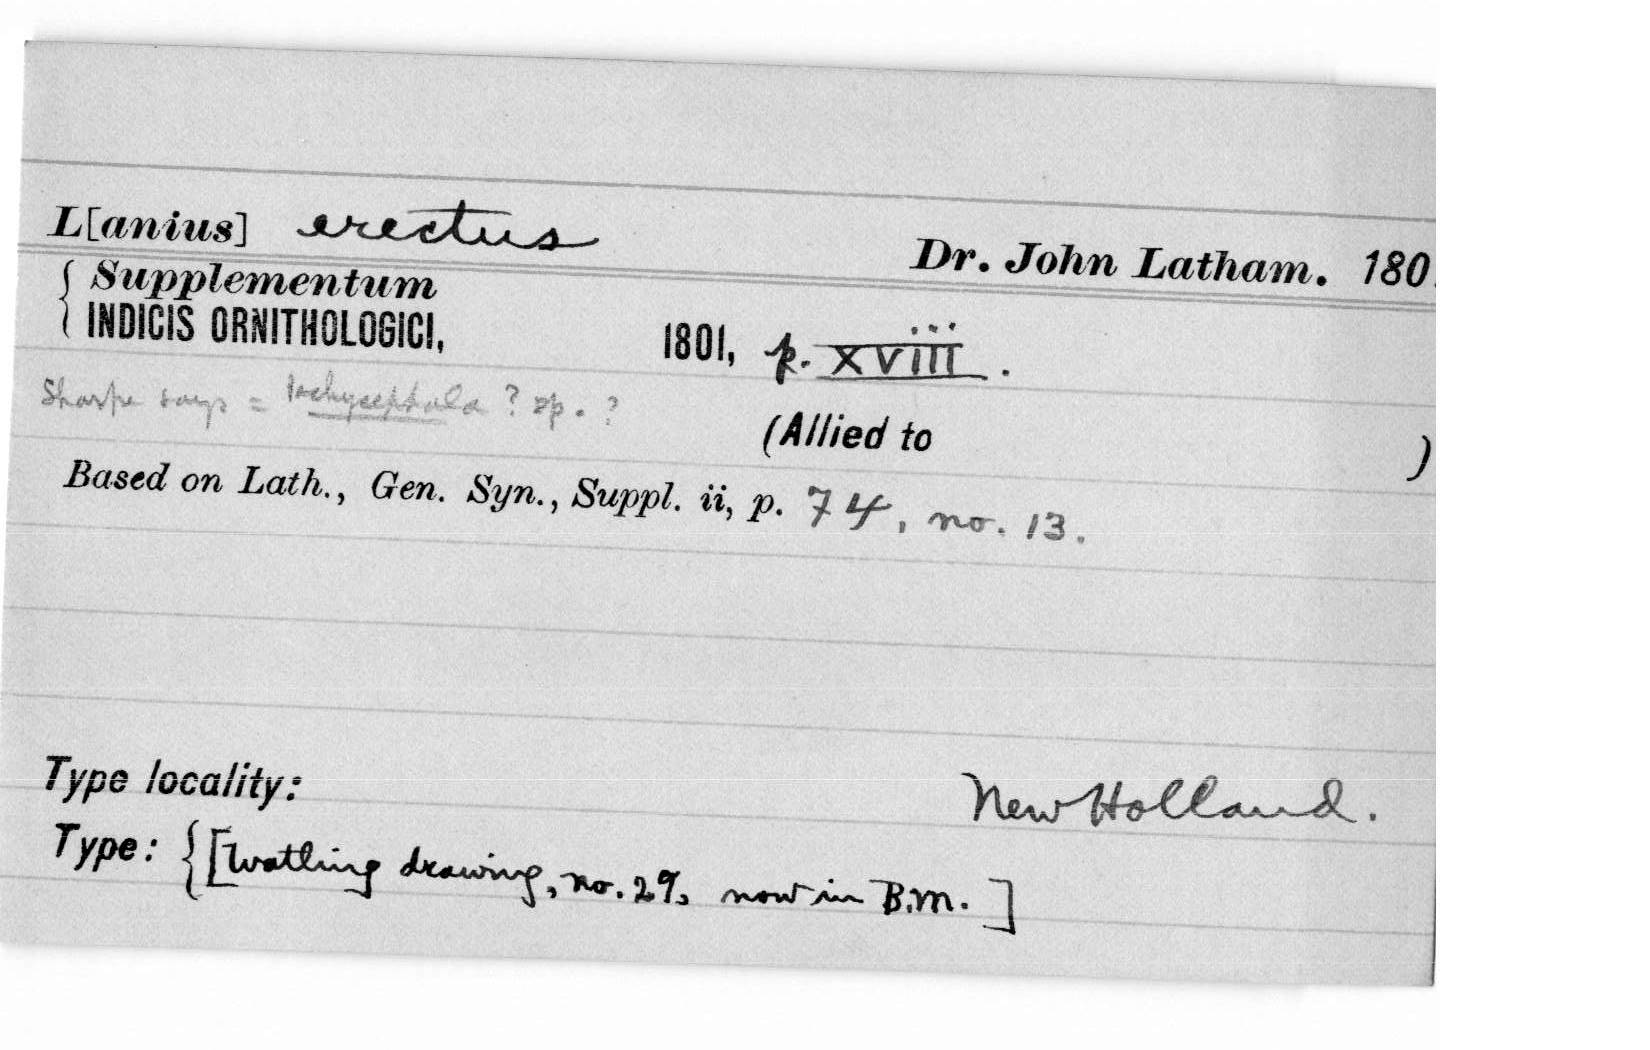 L[anius] erectus
Dr. John Latham. 180
{ Supplementum
INDICIS ORNITHOLOGICI, 1801, p. xviii.
Sharpe says = Pachycephala ? sp. ?
(Allied to )
Based on Lath., Gen. Syn., Suppl. ii, p. 74, no. 13.
Type locality: New Holland.
Type: {[Watling drawing, no. 29, now in B.M.]